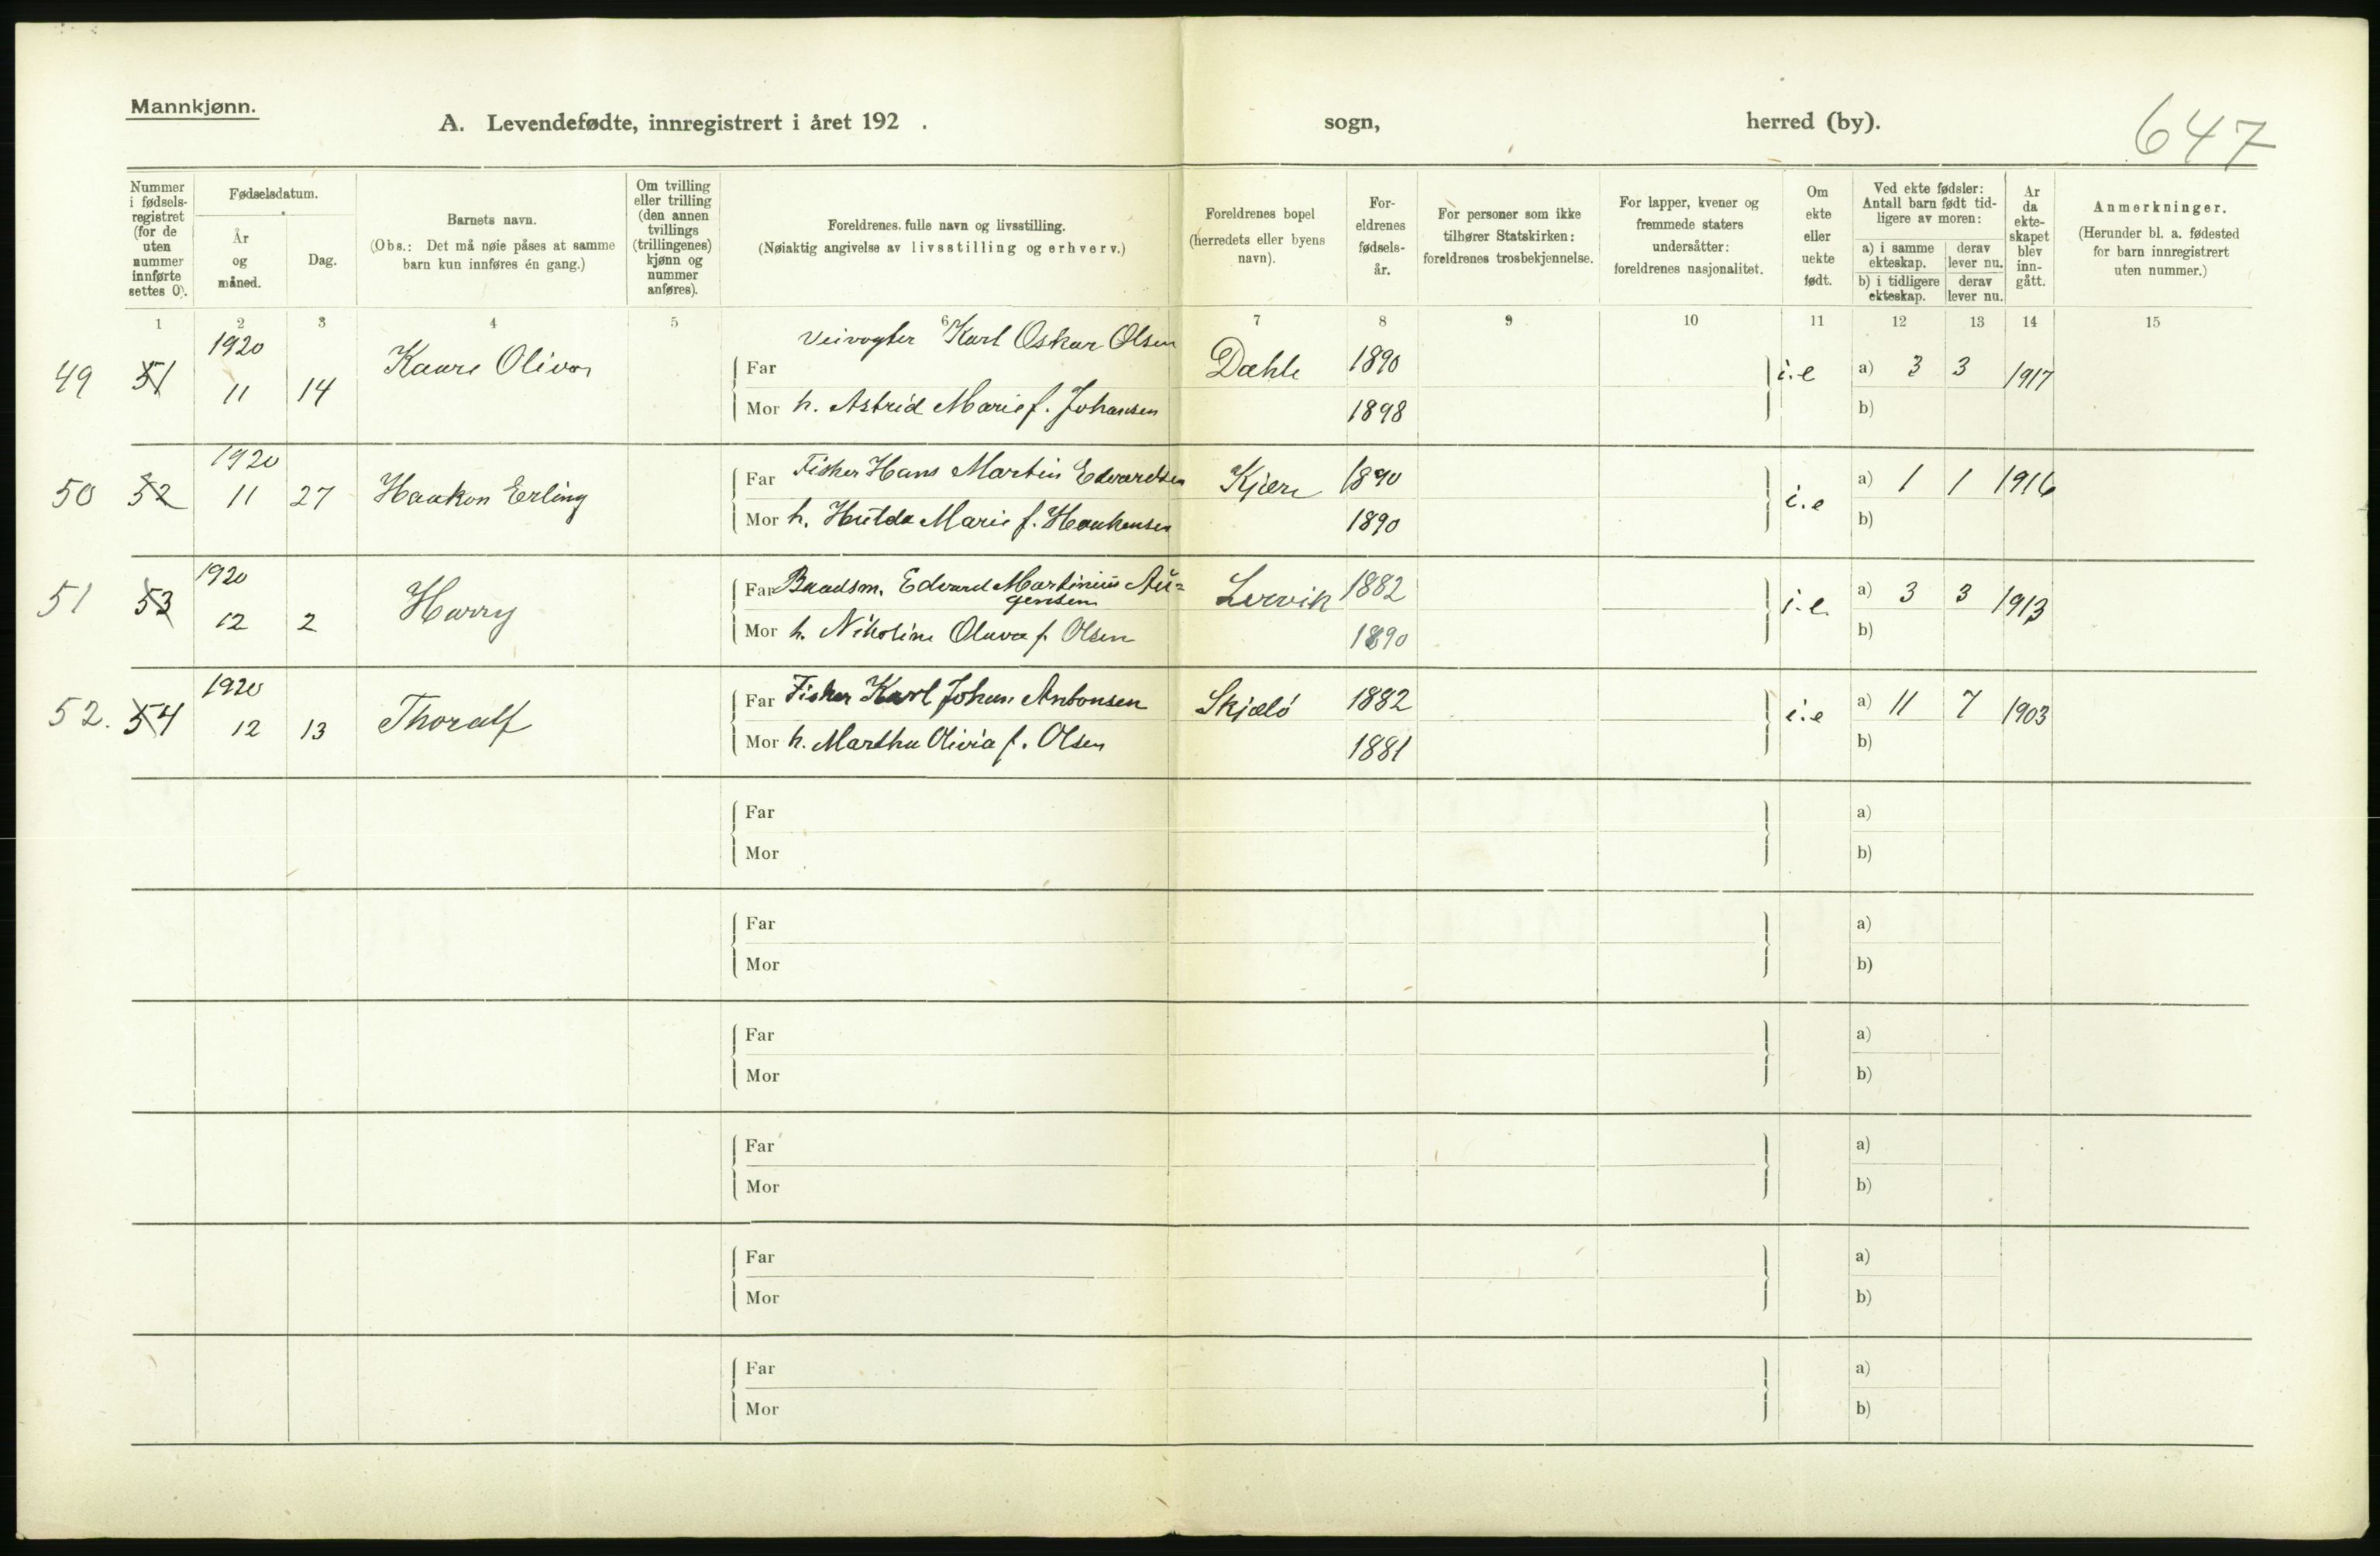 Mannkjønn.
A. Levendefødte, innregistrert i året 192 . sogn, herred (by).
647
Nummer i fødselsregistret (for de uten nummer innførte settes 0).
Fødselsdatum.
År og måned.
Dag.
Barnets navn.
(Obs.: Det må nøie påses at samme barn kun innføres én gang.)
Om tvilling eller trilling (den annen tvillings (trillingenes) kjønn og nummer anføres).
Foreldrenes fulle navn og livsstilling.
(Nøiaktig angivelse av livsstilling og erhverv.)
Foreldrenes bopel (herredets eller byens navn).
Foreldrenes fødselsår.
For personer som ikke tilhører Statskirken: foreldrenes trosbekjennelse.
For lapper, kvener og fremmede staters undersåtter: foreldrenes nasjonalitet.
Om ekte eller uekte født.
Ved ekte fødsler: Antall barn født tidligere av moren:
a) i samme ekteskap. derav lever nu.
b) i tidligere ekteskap. derav lever nu.
År da ekteskapet blev inngått.
Anmerkninger.
(Herunder bl. a. fødested for barn innregistrert uten nummer.)
1 2 3 4 5 6 7 8 9 10 11 12 13 14 15
49 51 1920 11 14 Kaare Oliver
Far Veivogter Karl Oskar Olsen Dæhle 1890 i.e a) 3 3 1917
Mor h. Astrid Marie f. Johansen 1898 b)
50 52 1920 11 27 Haakon Erling
Far Fisker Hans Martin Edvardsen Kjære 1890 i.e a) 1 1 1916
Mor h. Hulda Marie f. Haakensen 1890 b)
51 53 1920 12 2 Harry
Far Baadsm. Edvard Martinius Au=
gensen Lervik 1882 i.e. a) 3 3 1913
Mor h. Nikoline Olava f. Olsen 1890 b)
52. 54 1920 12 13 Thoralf
Far Fisker Karl Johan Antonsen Skjælø 1882 i.e a) 11 7 1903
Mor h. Martha Olivia f. Olsen 1881 b)
Far a)
Mor b)
Far a)
Mor b)
Far a)
Mor b)
Far a)
Mor b)
Far a)
Mor b)
Far a)
Mor b)